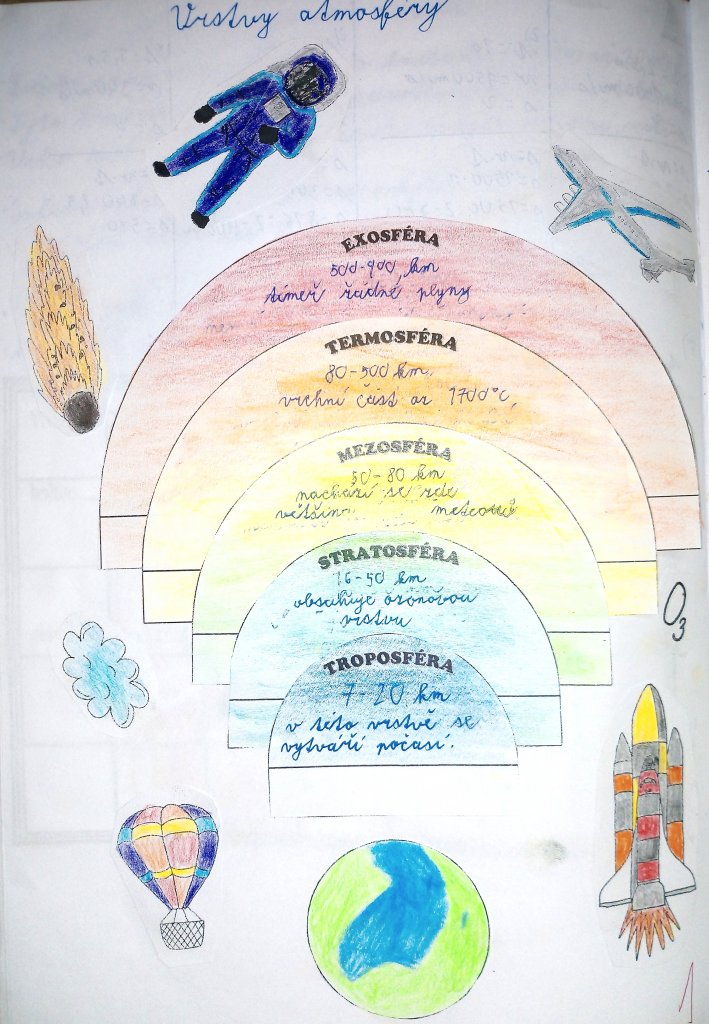 Vrstvy atmosféry
EXOSFÉRA
500-900 km
téměř žádné plyny
TERMOSFÉRA
80-500 km
vrchní část až 1700°C
MEZOSFÉRA
50-80 km
nachází se zde
většina meteorů
STRATOSFÉRA
16-50 km
obsahuje ozónovou
vrstvu
O3
TROPOSFÉRA
7-20 km
v této vrstvě se
vytváří počasí.
1